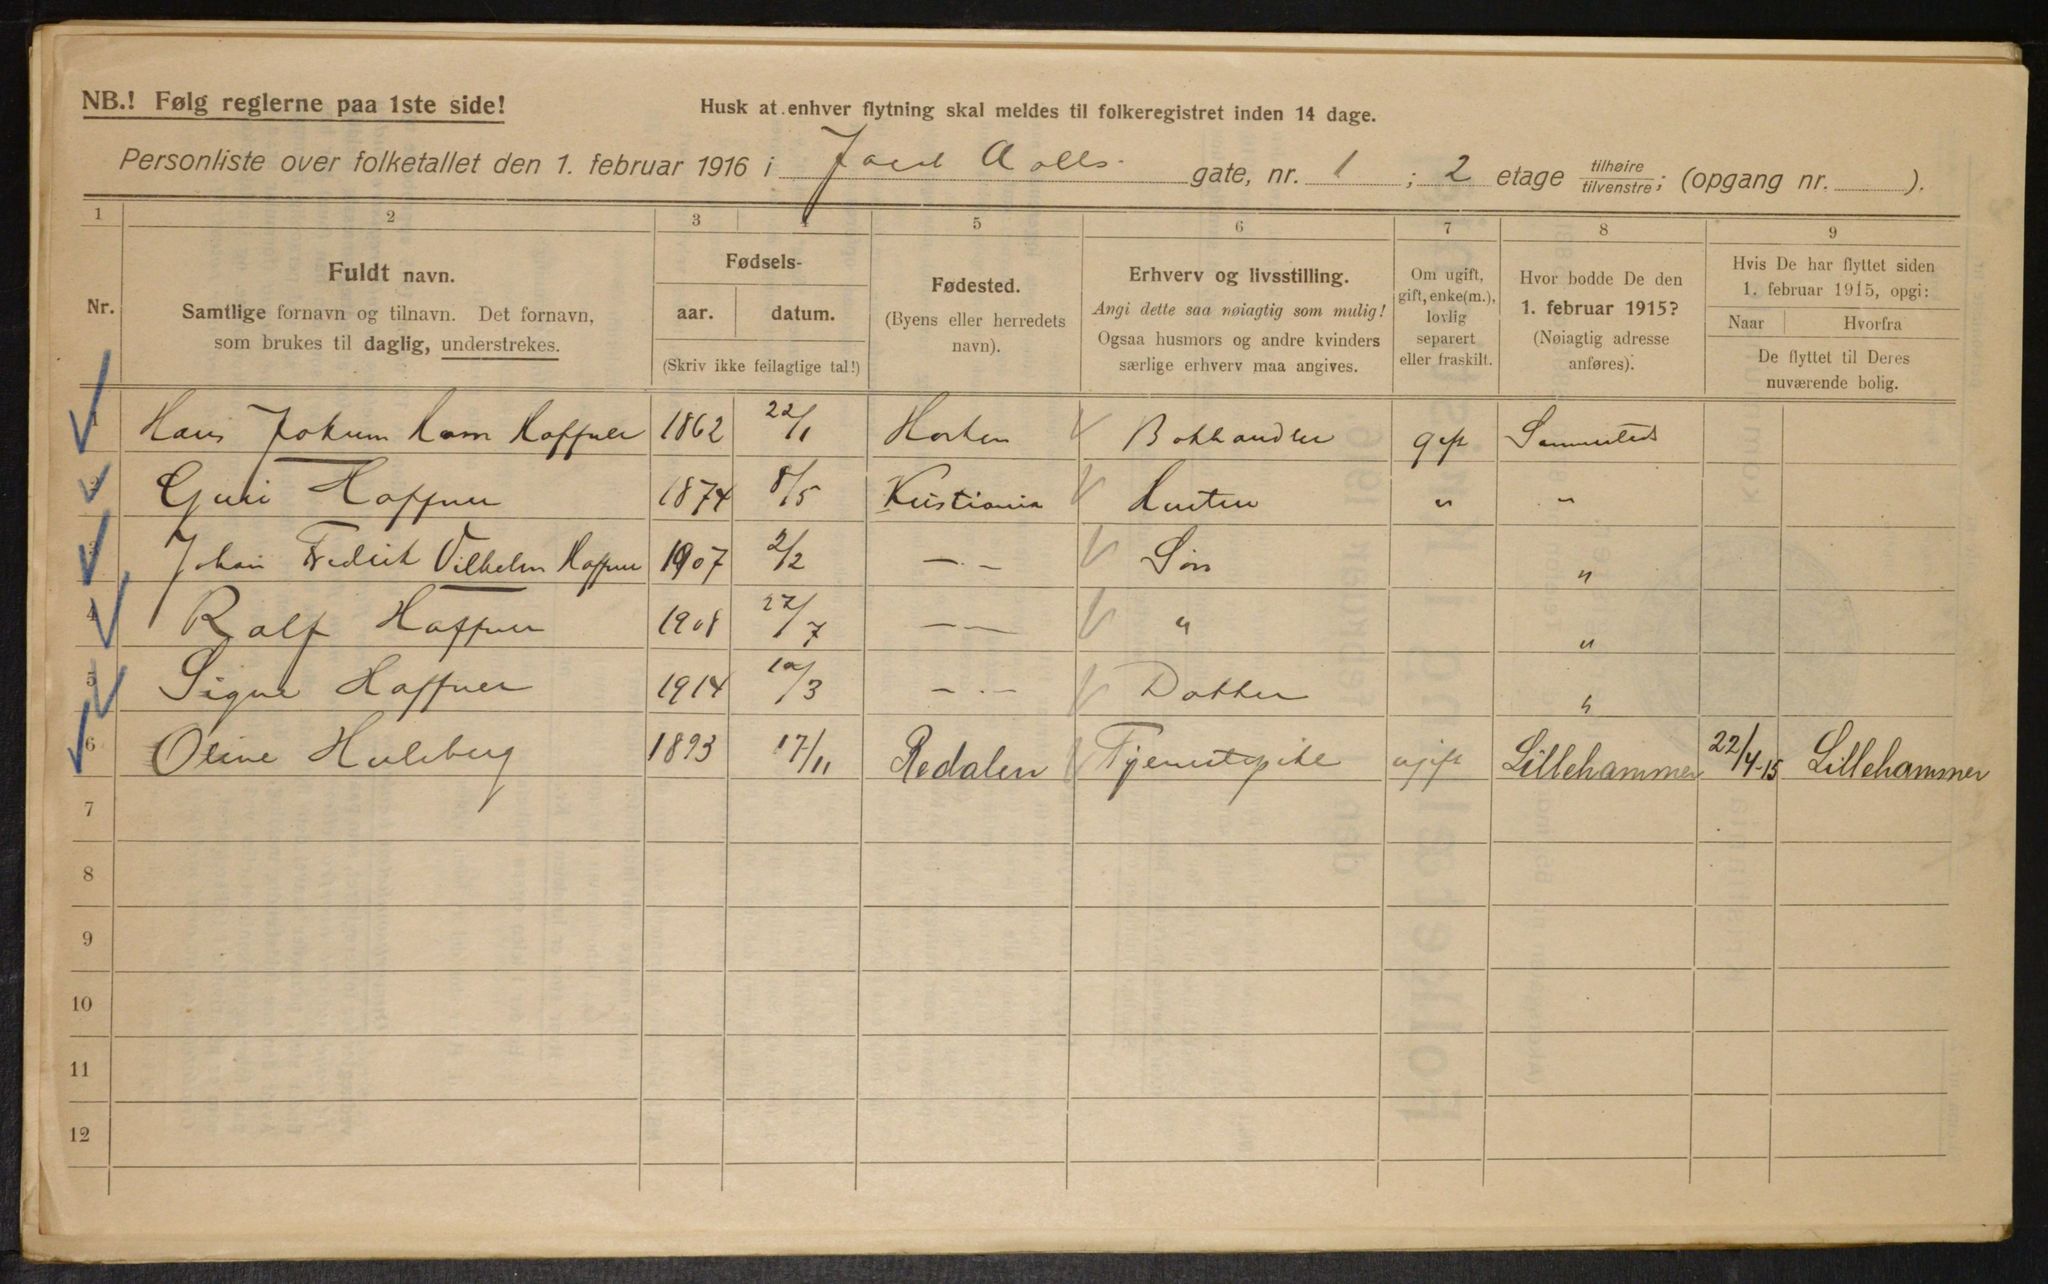 NB.! Følg reglerne paa 1ste side!
Husk at enhver flytning skal meldes til folkeregistret inden 14 dage.
Personliste over folketallet den 1. februar 1916 i Jacob Aalls gate, nr. 1 ; 2 etage tilhøire/tilvenstre; (opgang nr. ).
1 2 3 4 5 6 7 8 9
Nr.
Fuldt navn.
Samtlige fornavn og tilnavn. Det fornavn,
som brukes til daglig, understrekes.
Fødsels-
aar. datum.
(Skriv ikke feilagtige tal!)
Fødested.
(Byens eller herredets
navn).
Erhverv og livsstilling.
Angi dette saa nøiagtig som mulig!
Ogsaa husmors og andre kvinders
særlige erhverv maa angives.
Om ugift,
gift, enke(m.),
lovlig
separert
eller fraskilt.
Hvor bodde De den
1. februar 1915?
(Nøiagtig adresse
anføres).
Hvis De har flyttet siden
1. februar 1915, opgi:
Naar Hvorfra
De flyttet til Deres
nuværende bolig.
1 Hans Jokum Horn Haffner 1862 22/1 Horten Bokhandler gift Sammesteds
2 Guri Haffner 1874 8/5 Kristiania Hustru " "
3 Johan Fredrik Vilhelm Haffner 1907 2/2 —.— Søn "
4 Rolf Haffner 1908 27/7 —.— " "
5 Signe Haffner 1914 10/3 —.— Datter "
6 Oline Hulsberg 1893 17/11 Redalen Tjenestpike ugift Lillehammer 22/4-15 Lillehammer
7
8
9
10
11
12